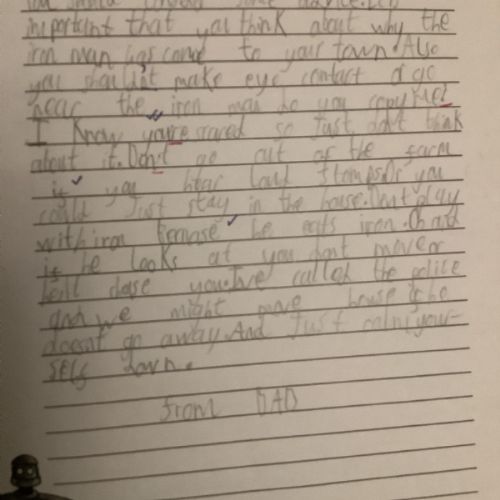 you should some advice. It's
important that you think about why the
iron man has come to your town. Also
you shouldn't make eye contact or go
near the iron man do you copy me?
I know you're scared so just don't think
about it. Don't go out of the farm
if you hear loud stomps. Or you
could just stay in the house. Dont play
with iron because he eats iron. Oh and
if he looks at you dont move or
he'll chase you. I've called the police
and we might move house if he
doesnt go away. And just calm your-
self down.
from DAD